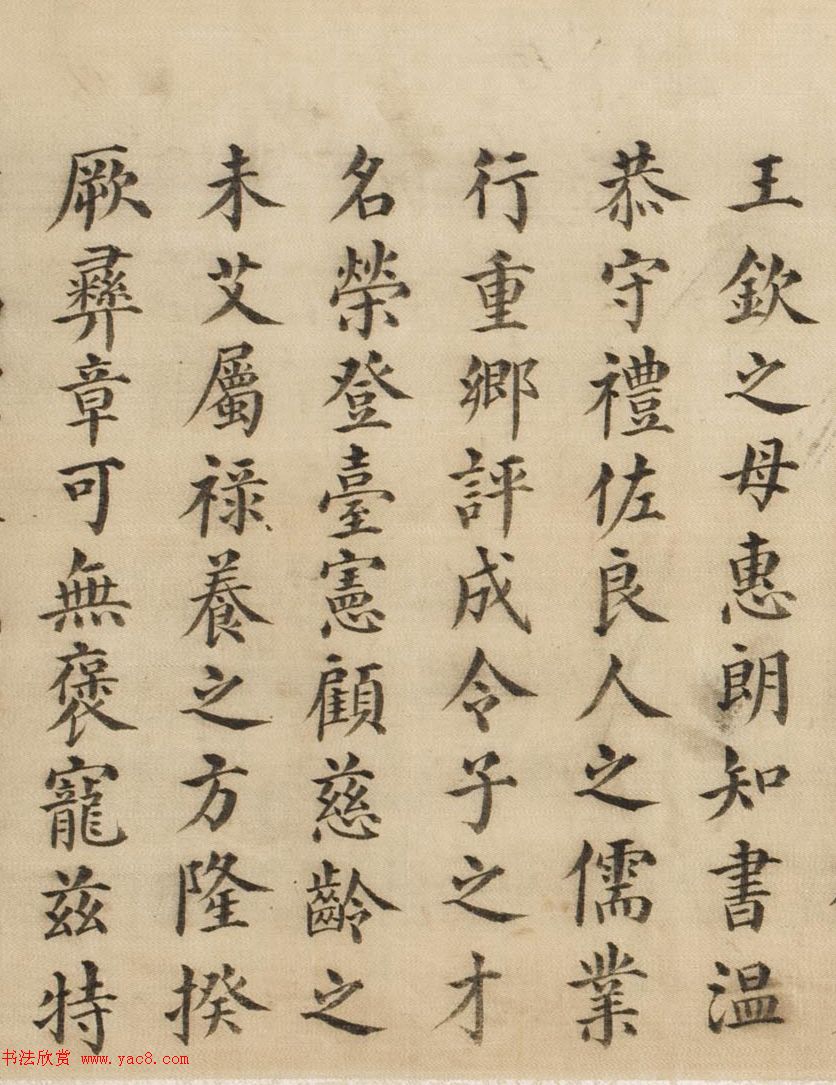 王欽之母惠朗知書温
恭守禮佐良人之儒業
行重鄉評成令子之才
名榮登臺憲顧慈齡之
未艾屬祿養之方隆揆
厥彝章可無褒寵兹特
书法欣赏 www.yac8.com